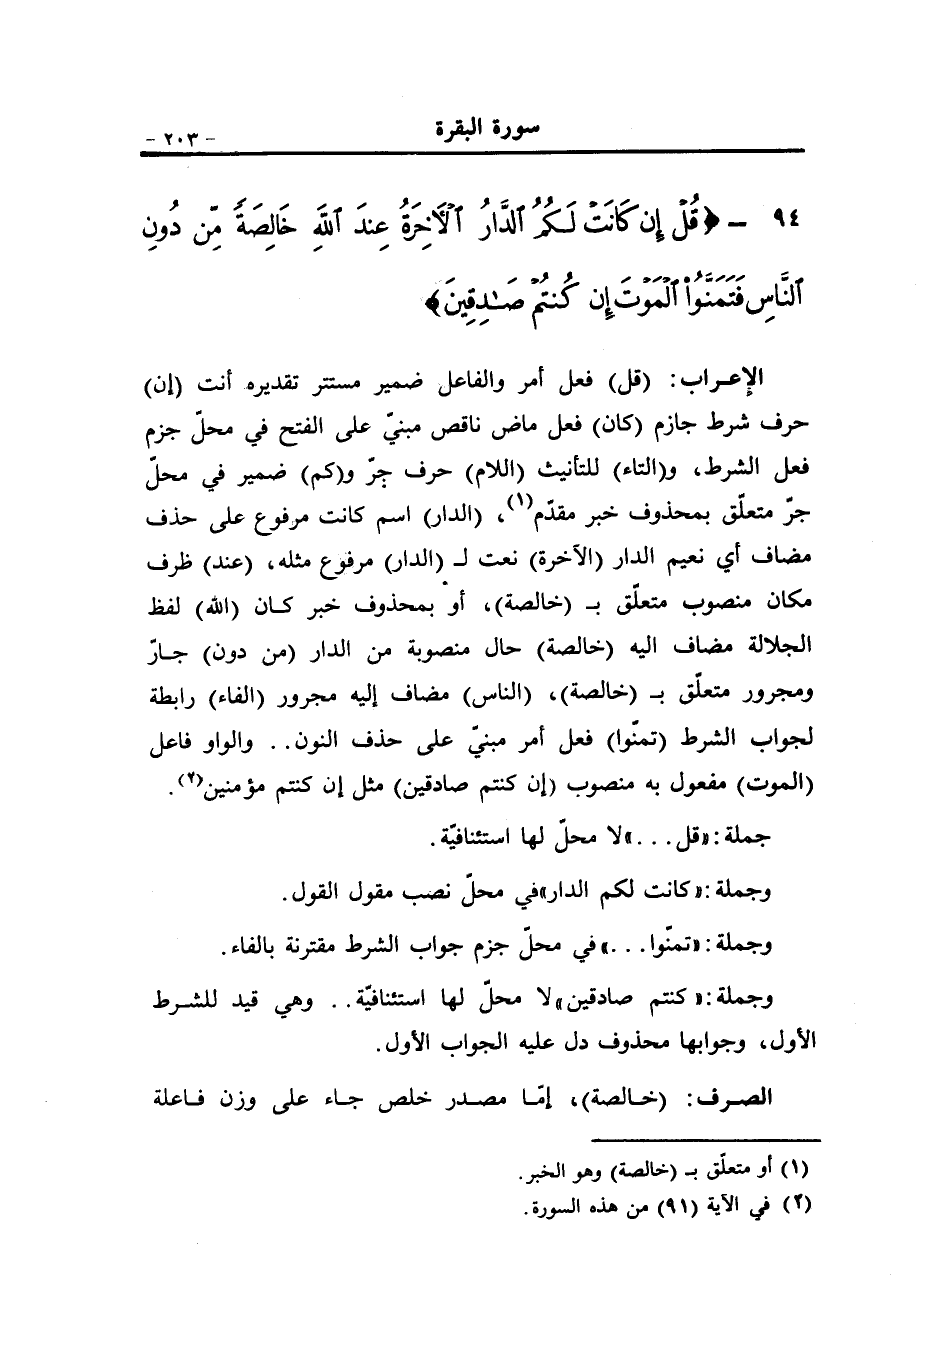 سورة البقرة
- ٢٠٣ -
٩٤ - ﴿قُلْ إِن كَانَتْ لَكُمُ ٱلدَّارُ ٱلْآخِرَةُ عِندَ ٱللَّهِ خَالِصَةً مِّن دُونِ
ٱلنَّاسِ فَتَمَنَّوُا۟ ٱلْمَوْتَ إِن كُنتُمْ صَـٰدِقِينَ﴾
الإعـراب: (قل) فعل أمر والفاعل ضمير مستتر تقديره أنت (إن)
حرف شرط جازم (كان) فعل ماض ناقص مبنيّ على الفتح في محلّ جزم
فعل الشرط، و(التاء) للتأنيث (اللام) حرف جرّ و(كم) ضمير في محلّ
جرّ متعلّق بمحذوف خبر مقدّم(١)، (الدار) اسم كانت مرفوع على حذف
مضاف أي نعيم الدار (الآخرة) نعت لـ (الدار) مرفوع مثله، (عند) ظرف
مكان منصوب متعلّق بـ (خالصة)، أو بمحذوف خبر كـان (الله) لفظ
الجلالة مضاف اليه (خالصة) حال منصوبة من الدار (من دون) جـارّ
ومجرور متعلّق بـ (خالصة)، (الناس) مضاف إليه مجرور (الفاء) رابطة
لجواب الشرط (تمنّوا) فعل أمر مبنيّ على حذف النون.. والواو فاعل
(الموت) مفعول به منصوب (إن كنتم صادقين) مثل إن كنتم مؤمنين(٢).
جملة: «قل...» لا محلّ لها استئنافيّة.
وجملة: «كانت لكم الدار» في محلّ نصب مقول القول.
وجملة: «تمنّوا...» في محلّ جزم جواب الشرط مقترنة بالفاء.
وجملة: «كنتم صادقين» لا محلّ لها استئنافيّة.. وهي قيد للشـرط
الأول، وجوابها محذوف دل عليه الجواب الأول.
الصـرف: (خـالصة)، إمّـا مصـدر خلص جـاء على وزن فـاعلة
(١) أو متعلّق بـ (خالصة) وهو الخبر.
(٢) في الآية (٩١) من هذه السورة.